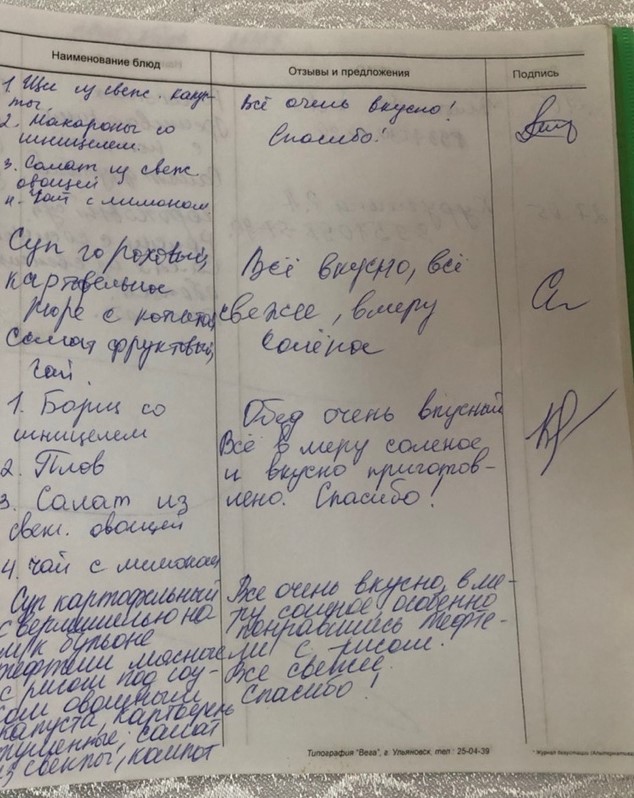 Наименование блюд
Отзывы и предложения
Подпись
1 Щи из свеж. капус-
ты
2. Макароны со
шницелем
3. Салат из свеж.
овощей
4. Чай с лимоном
Всё очень вкусно!
Спасибо!
Суп гороховый,
картофельное
пюре с котлетой
салат фруктовый,
чай.
Всё вкусно, всё
свежее, в меру
солёное
1. Борщ со
шницелем
2. Плов
3. Салат из
свеж. овощей
4. чай с лимоном
Обед очень вкусный
Всё в меру соленое
и вкусно приготов-
лено. Спасибо!
Суп картофельный
с вермишелью на
бульоне
тефтели мясные
с рисом под соу-
сом овощным
капуста, картофель
тушенные; салат
из свеклы, компот
Все очень вкусно, в ме-
ру соленое особенно
понравились тефте-
ли с рисом.
Все свежее.
Спасибо!
Типография "Вега", г. Ульяновск, тел.: 25-04-39